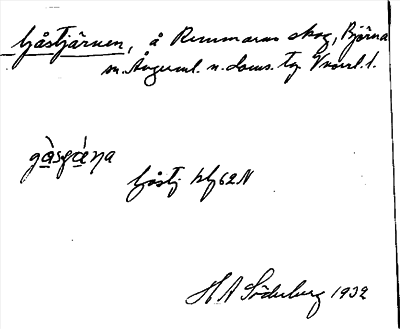 Gåstjärnen, å Remmaren skog, Björna
sn. Ångerml. n. doms. Tg Vnorrl. l.
gåsġàna
Gåstj hlf 62 N
H A Söderberg 1932